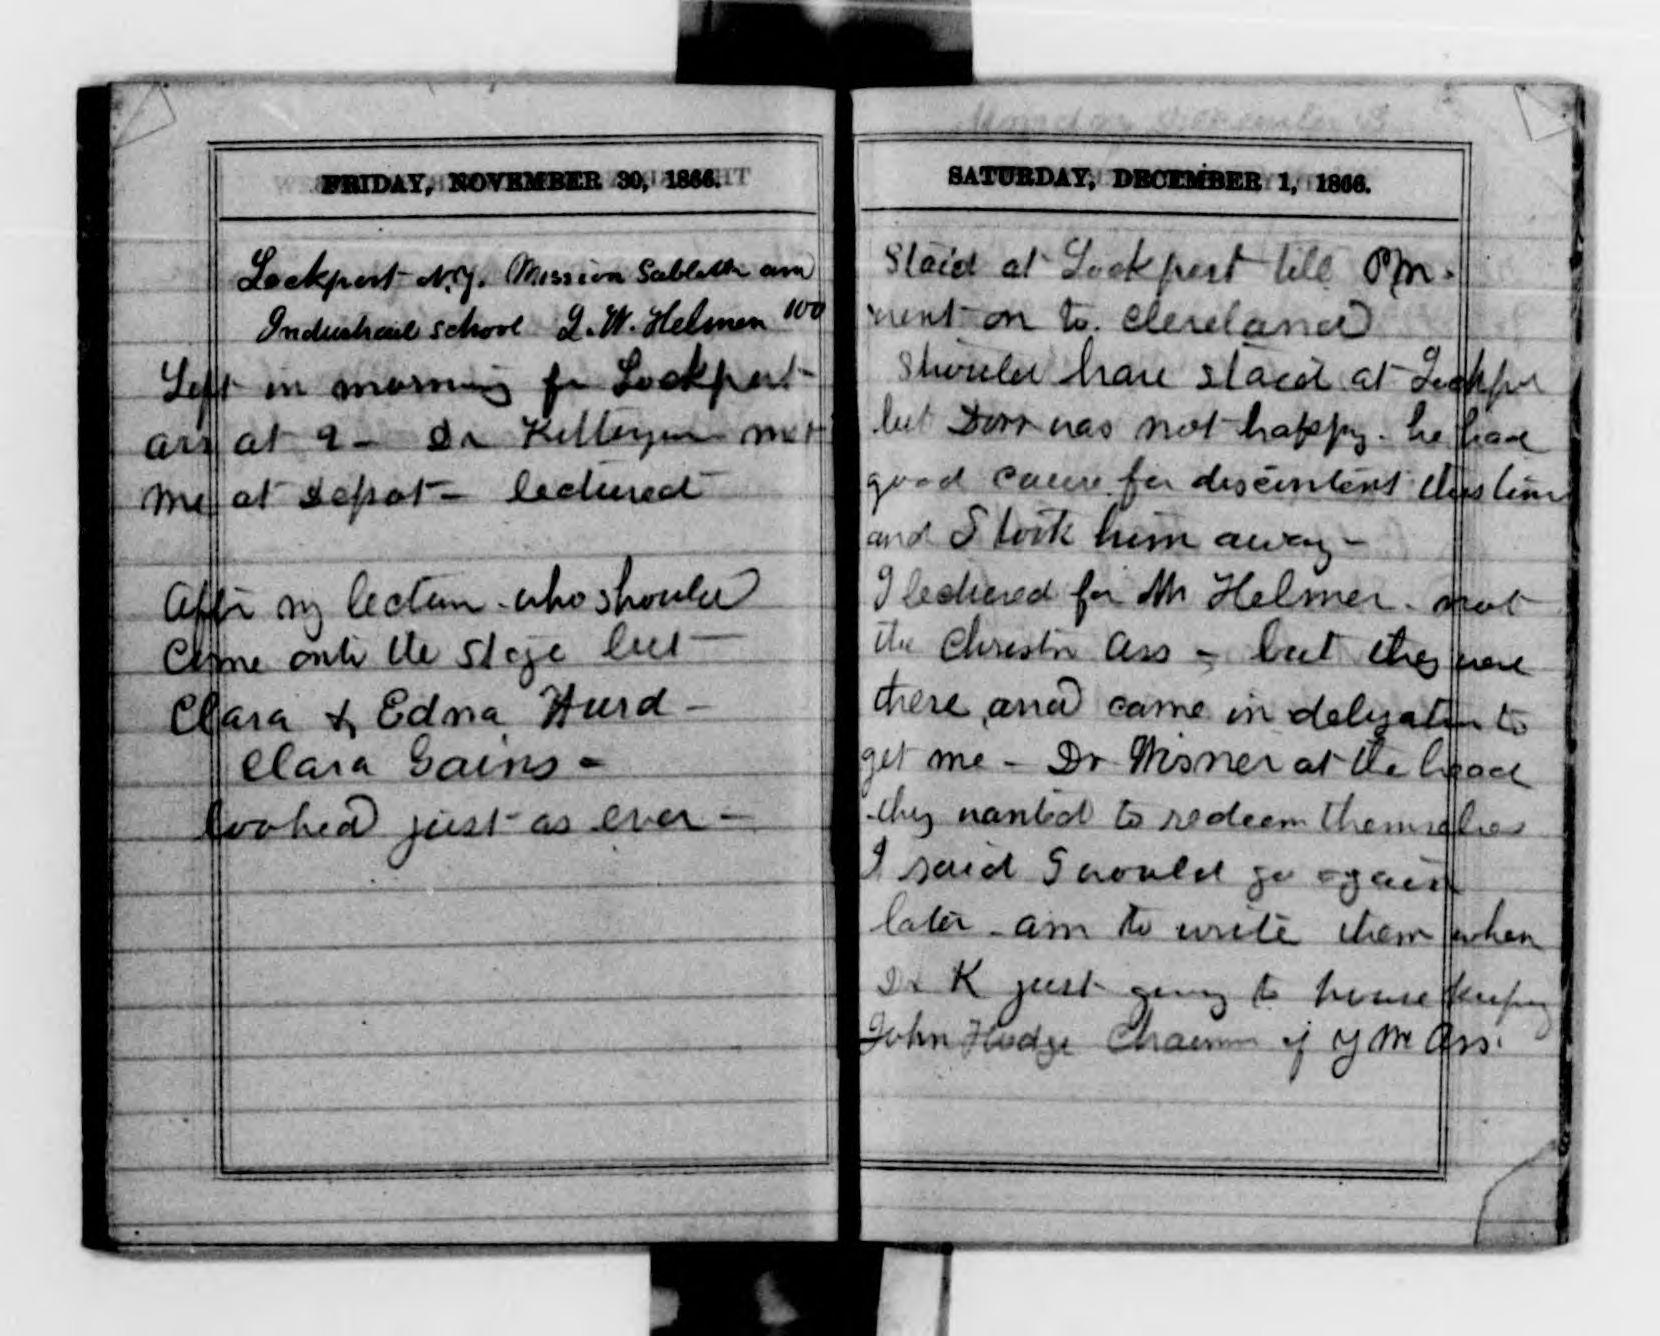 FRIDAY, NOVEMBER 30, 1866.
Lockport N.Y. Mission Sabbath and
Industrial school J. W. Helmer 100
Left in morning for Lockport
arr at 9 - Dr met
me at Depot - lectured
After my lecture - who should
Come onto the Stage but -
Clara & Edna Hurd -
Clara Gains -
looked just as ever -
SATURDAY, DECEMBER 1, 1866.
Staid at Lockport till PM.
went on to Cleveland
Should have staid at Lockport
but Dorr was not happy. he had
good cause for discontent this time
and I took him away -
I lectured for Mr Helmer. not
the Christn Ass - but they were
there, and came in delegation to
get me - Dr Wisner at the head
they wanted to redeem themselves
I said I would go again
later - am to write them when
Dr K just going to house keeping
John Hodge Chairman of Y M Ass.